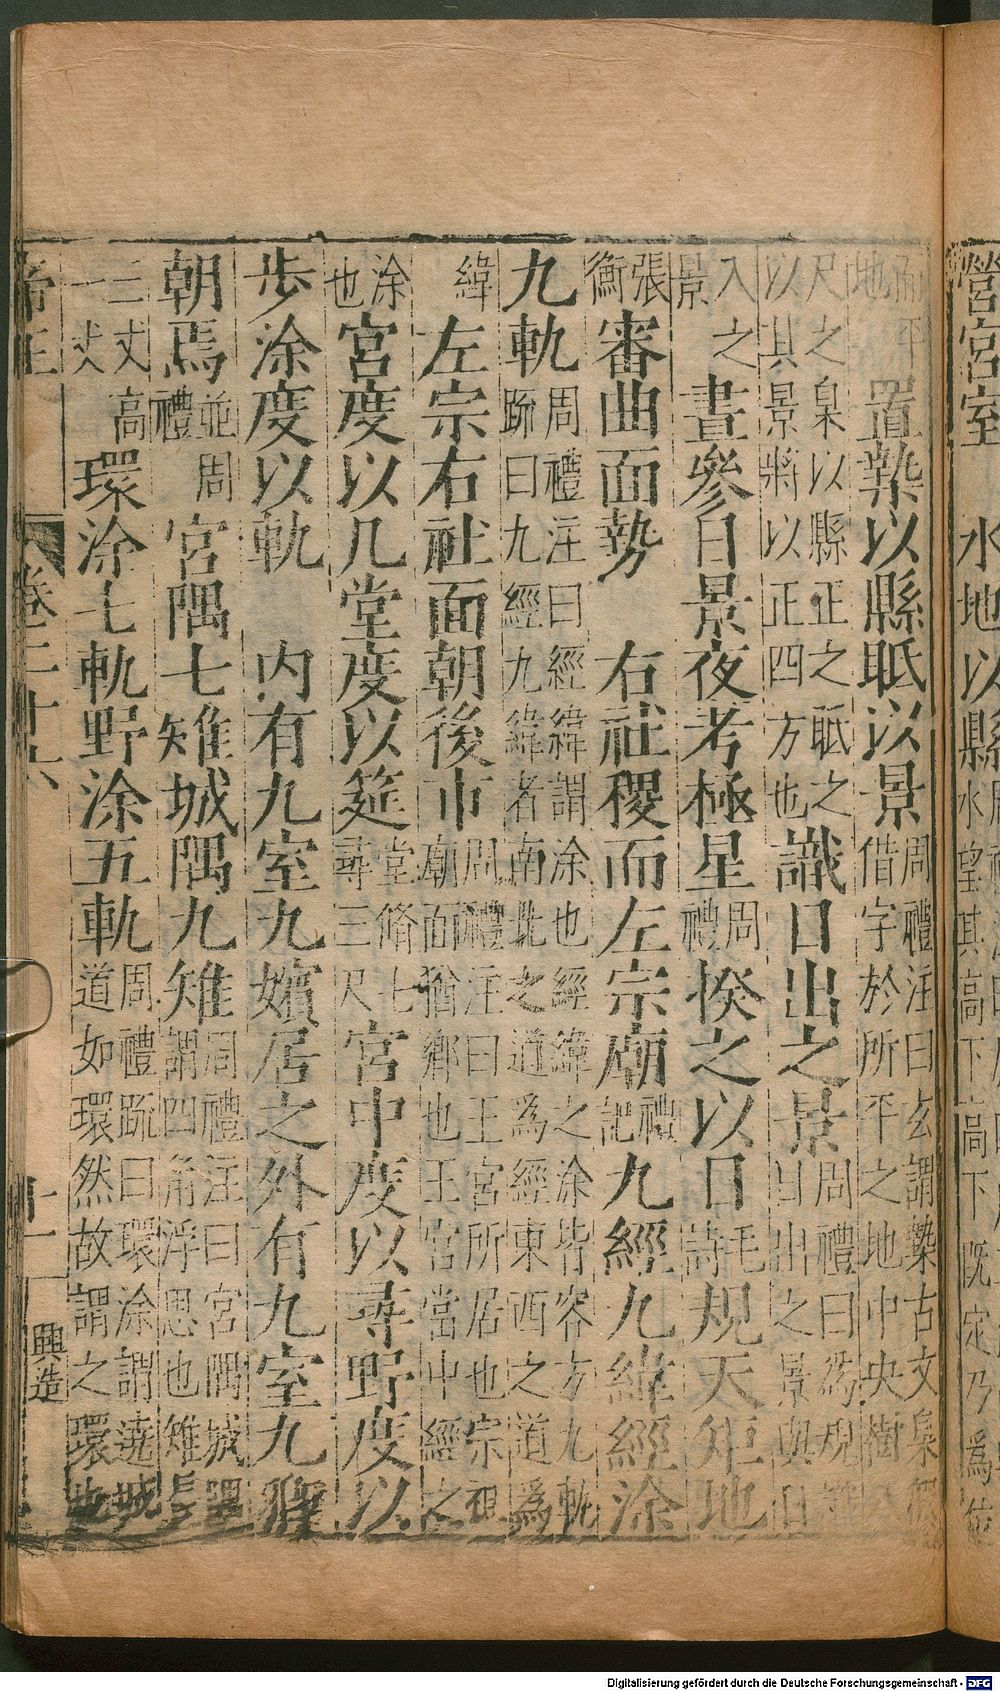 營宮室 水地以縣
而平地 置槷以縣眂以景 周禮注曰玄謂槷古文臬假借字於所平之地中央樹
尺之臬以縣正之眂之以其景將以正四方也 識日出之景 周禮曰為規識日出之景與日
入之景 晝參日景夜考極星 周禮 揆之以日 毛詩 規天矩地
張衡 審曲面勢 右社稷而左宗廟 禮記 九經九緯經涂
九軌 周禮注曰經緯謂涂也經緯之涂皆容方九軌 疏曰九經九緯者南北之道為經東西之道為
緯 左宗右社面朝後市 周禮注曰王宮所居也宗祖廟面猶鄉也王宮當中經之
涂也 宮度以几堂度以筵 堂脩七尋三尺 宮中度以尋野度以
步涂度以軌 内有九室九嬪居之外有九室九卿
朝焉 並周禮 宮隅七雉城隅九雉 周禮注曰宮隅城隅謂四角浮思也雉長
三丈高一丈 環涂七軌野涂五軌 周禮疏曰環涂謂遶城道如環然故謂之環也
帝王 卷二十六 十一 興造
Digitalisierung gefördert durch die Deutsche Forschungsgemeinschaft - DFG